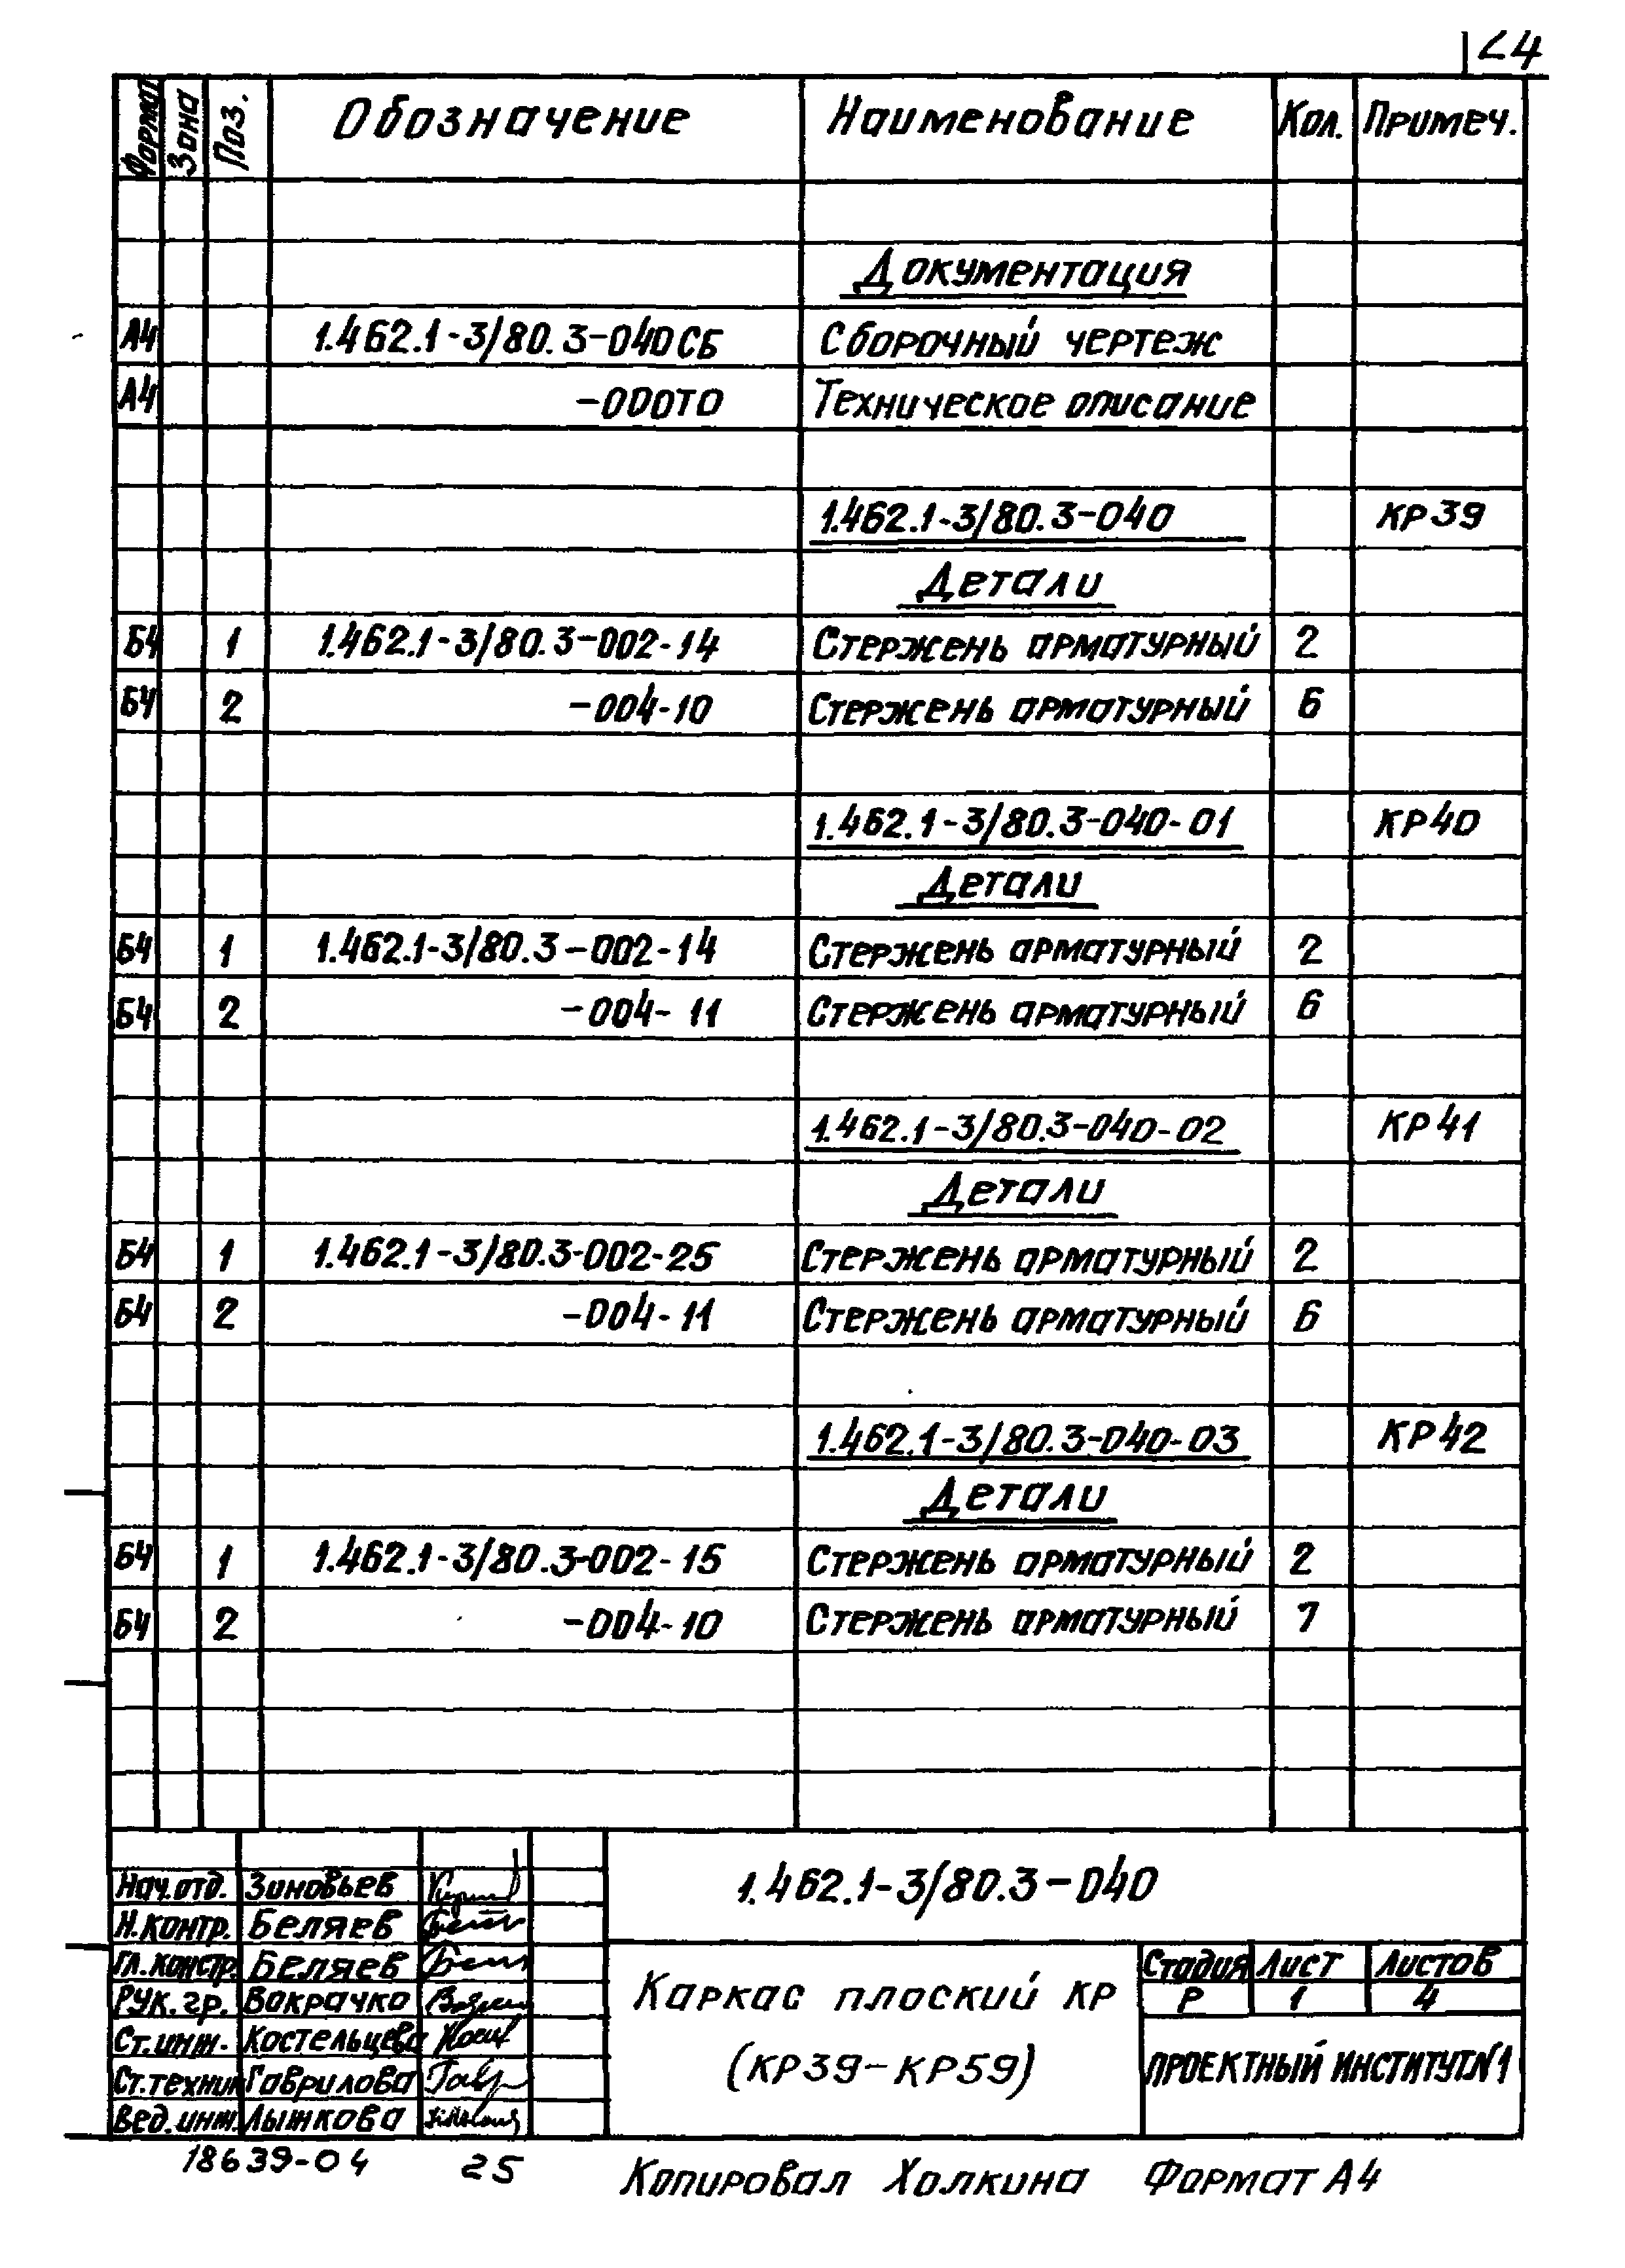 24
Формат Зона Поз. Обозначение Наименование Кол. Примеч.
Документация
А4 1.462.1-3/80.3-040СБ Сборочный чертеж
А4 -000ТО Техническое описание
1.462.1-3/80.3-040 КР39
Детали
Б4 1 1.462.1-3/80.3-002-14 Стержень арматурный 2
Б4 2 -004-10 Стержень арматурный 6
1.462.1-3/80.3-040-01 КР40
Детали
Б4 1 1.462.1-3/80.3-002-14 Стержень арматурный 2
Б4 2 -004-11 Стержень арматурный 6
1.462.1-3/80.3-040-02 КР41
Детали
Б4 1 1.462.1-3/80.3-002-25 Стержень арматурный 2
Б4 2 -004-11 Стержень арматурный 6
1.462.1-3/80.3-040-03 КР42
Детали
Б4 1 1.462.1-3/80.3-002-15 Стержень арматурный 2
Б4 2 -004-10 Стержень арматурный 7
Нач.отд. Зиновьев
Н.контр. Беляев
Гл.констр. Беляев
Рук.гр. Вакрачко
Ст.инж. Костельцева
Ст.техник Гаврилова
Вед.инж. Лыжкова
1.462.1-3/80.3-040
Каркас плоский КР
(КР39-КР59)
Стадия Лист Листов
Р 1 4
ПРОЕКТНЫЙ ИНСТИТУТ№1
18639-04 25 Копировал Холкина Формат А4